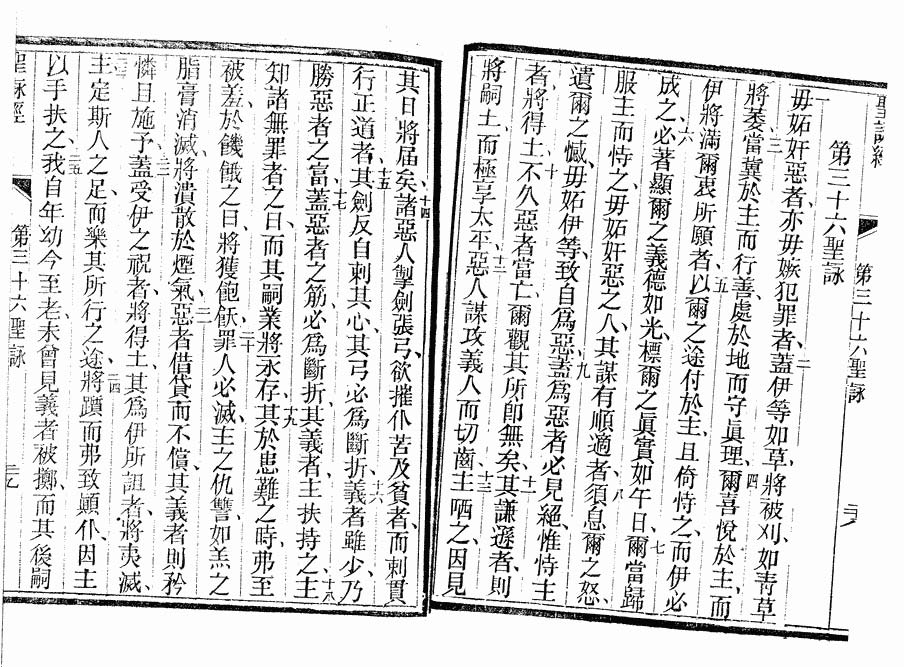 聖詠經
第三十六聖詠
第三十六聖詠
一
毋妬奸惡者亦毋嫉犯罪者蓋伊等如草將被刈、如靑草
二
將萎當冀於主而行善、處於地而守眞理、爾喜悅於主、而
三 四
伊將滿爾衷所願者以爾之途付於主、且倚恃之、而伊必
五
成之、必著顯爾之義德如光標爾之眞實如午日、爾當歸
六 七
服主而恃之、毋妬奸惡之人、其謀有順適者須息爾之怒、
八
遣爾之憾、毋妬伊等、致自爲惡、蓋爲惡者必見絕、惟恃主
九
者、將得土、不久惡者當亡、爾觀其所卽無矣、其謙遜者、則
十 十一
將嗣土、而極享太平、惡人謀攻義人而切齒、主哂之、因見
十二 十三
其日將屆矣、諸惡人掣劍張弓、欲摧仆苦及貧者、而刺貫
十四
行正道者、其劍反自刺其心、其弓必爲斷折、義者雖少、乃
十五 十六
勝惡者之富、蓋惡者之筋必爲斷折、其義者、主扶持之、主
十七 十八
知諸無罪者之日、而其嗣業將永存、其於患難之時、弗至
十九
被羞、於饑餓之日、將獲飽飫、罪人必滅、主之仇讐、如羔之
二十
脂膏消滅、將潰散於煙氣、惡者借貸而不償、其義者則矜
二一
憐且施予、蓋受伊之祝者、將得土、其爲伊所詛者、將夷滅、
二二
主定斯人之足、而樂其所行之途、將躓而弗致顚仆、因主
二三 二四
以手扶之、我自年幼今至老、未曾見義者被擲、而其後嗣
二五
聖詠經
第三十六聖詠